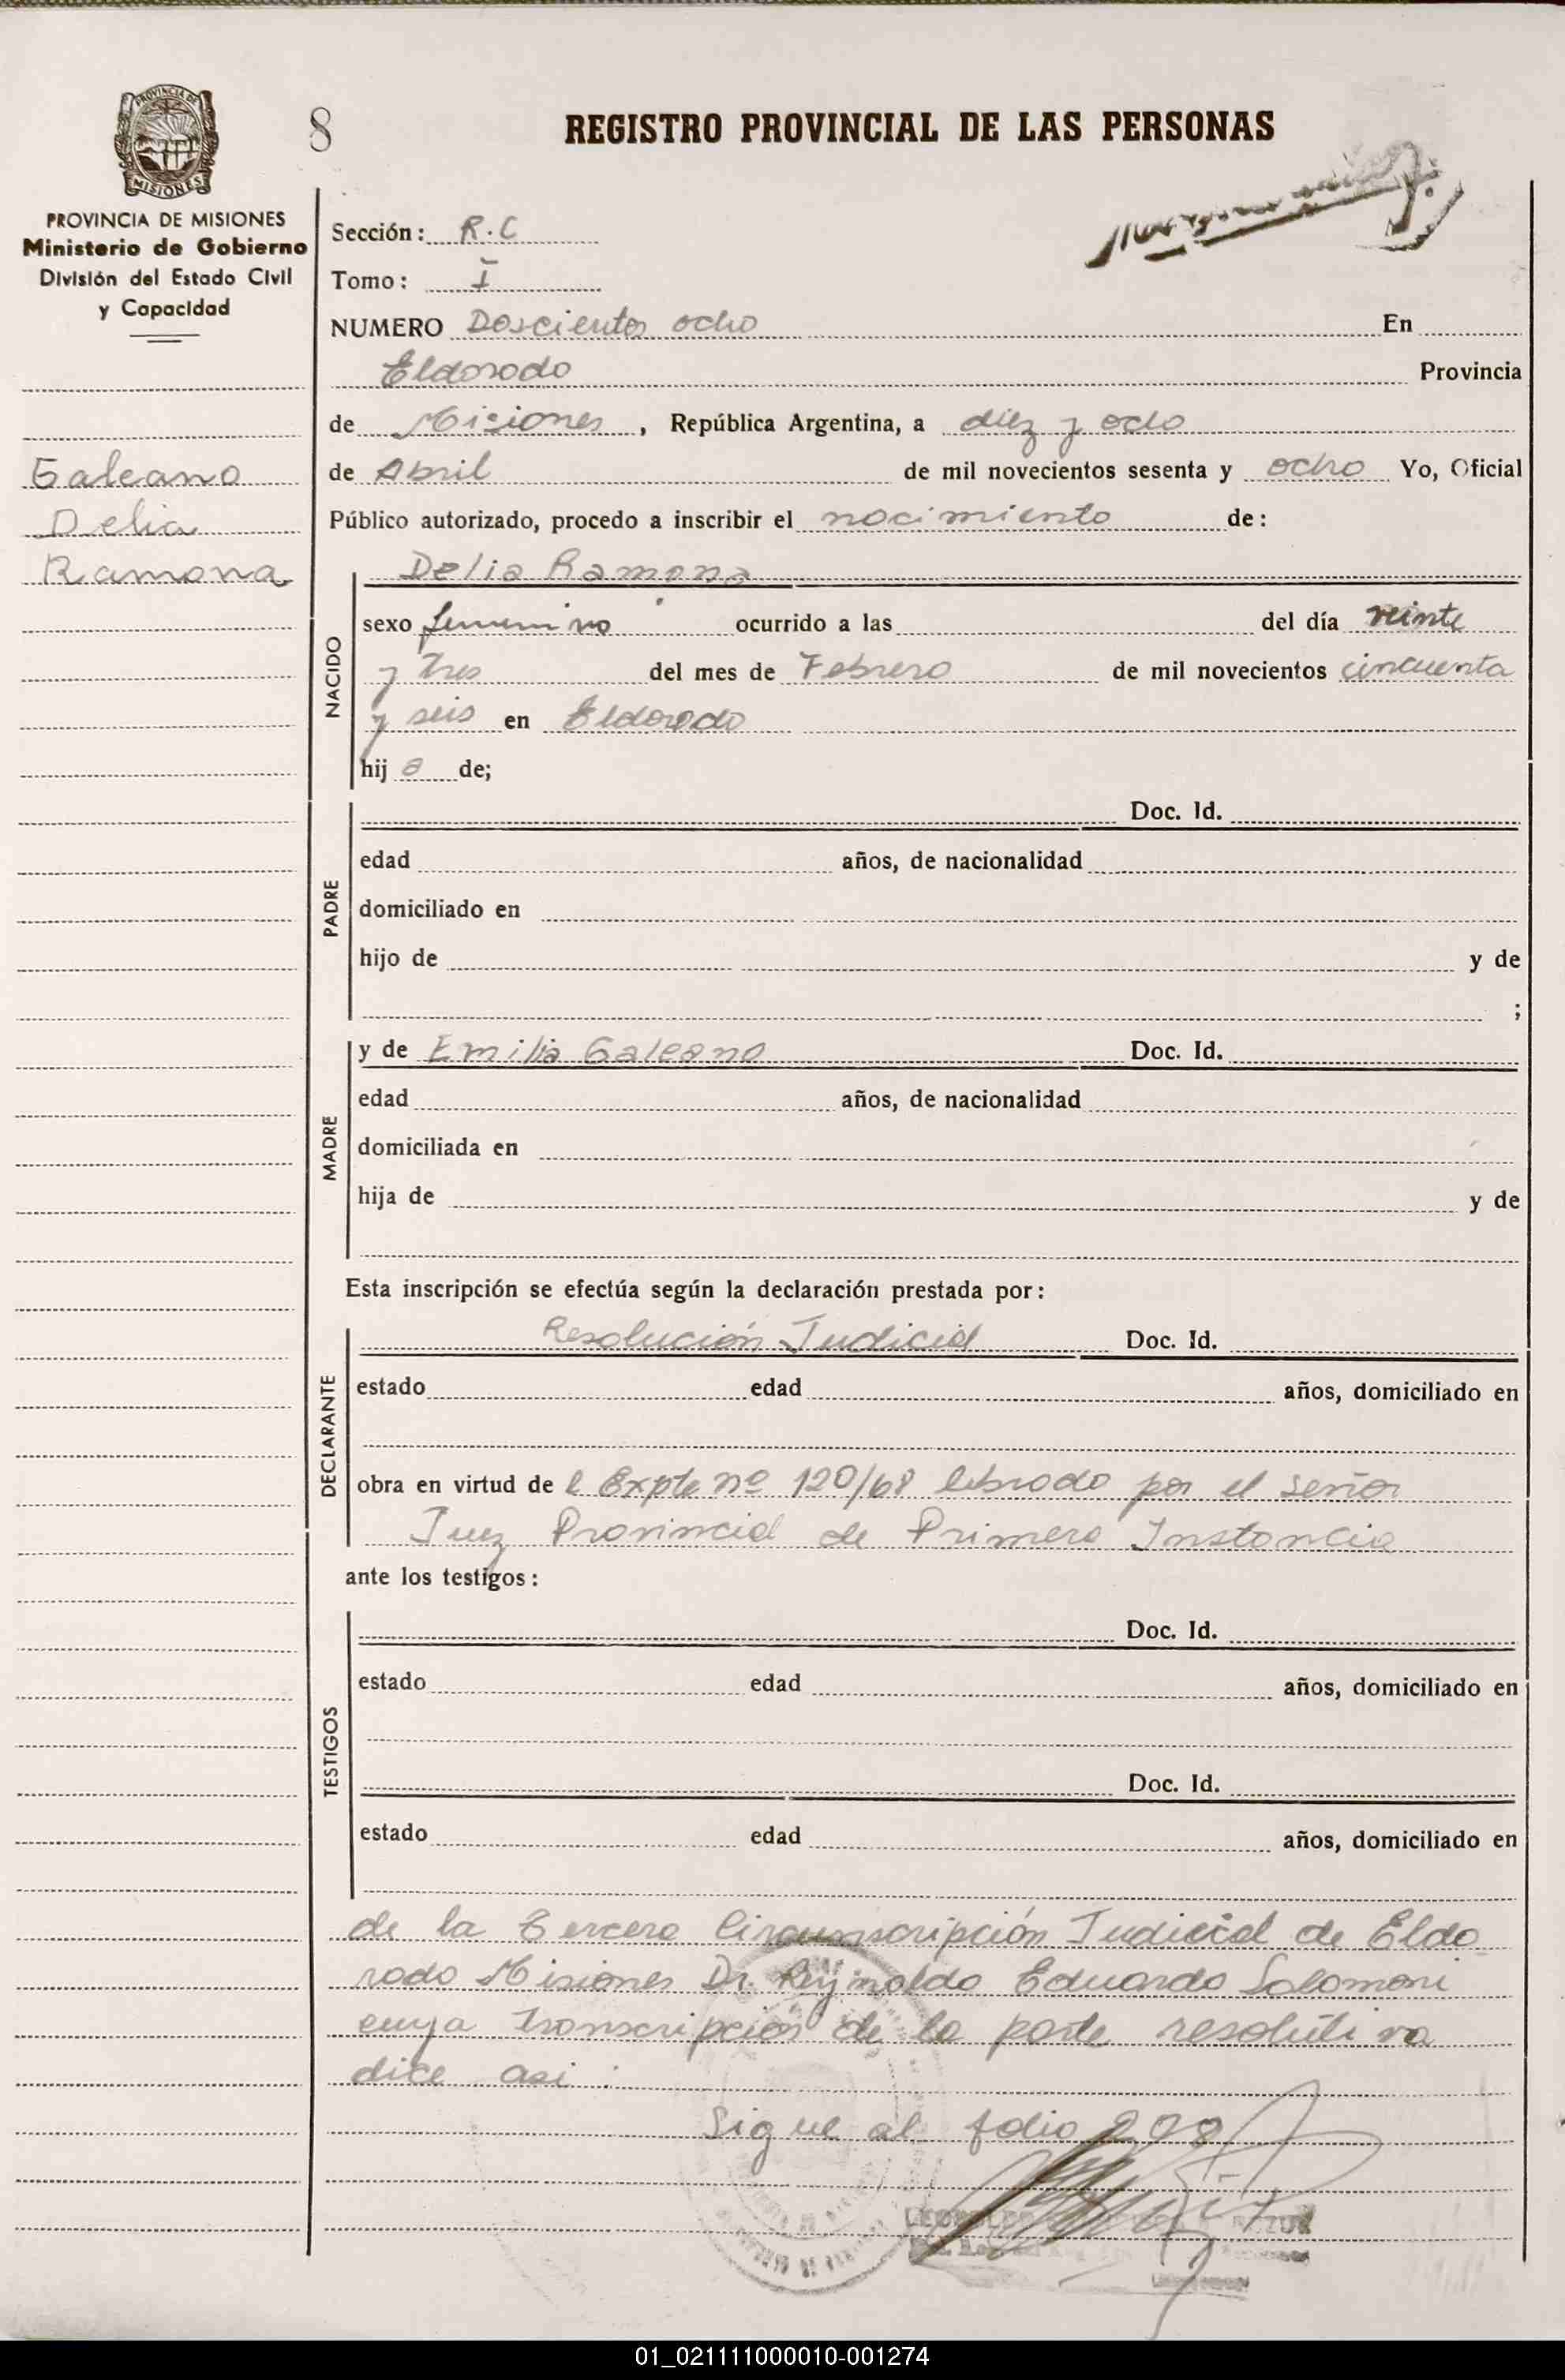 PROVINCIA DE MISIONES
PROVINCIA DE MISIONES
Ministerio de Gobierno
División del Estado Civil
y Capacidad
Galeano
Delia
Ramona
8
REGISTRO PROVINCIAL DE LAS PERSONAS
Sección: R.C
Tomo: I
NUMERO Doscientos ocho En
Eldorado Provincia
de Misiones, República Argentina, a diez y ocho
de Abril de mil novecientos sesenta y ocho Yo, Oficial
Público autorizado, procedo a inscribir el nacimiento de:
NACIDO
Delia Ramona
sexo femenino ocurrido a las del día veinte
y tres del mes de Febrero de mil novecientos cincuenta
y seis en Eldorado
hij a de;
PADRE
Doc. Id.
edad años, de nacionalidad
domiciliado en
hijo de y de
;
MADRE
y de Emilia Galeano Doc. Id.
edad años, de nacionalidad
domiciliada en
hija de y de
Esta inscripción se efectúa según la declaración prestada por:
DECLARANTE
Resolución Judicial Doc. Id.
estado edad años, domiciliado en
obra en virtud de l Expte nº 120/68 librado por el señor
Juez Provincial de Primera Instancia
ante los testigos:
TESTIGOS
Doc. Id.
estado edad años, domiciliado en
Doc. Id.
estado edad años, domiciliado en
de la Tercera Circunscripción Judicial de Eldo
rado Misiones Dr. Reynaldo Eduardo Salomoni
cuya transcripción de la parte resolutiva
dice asi :
Sigue al folio 298
01_021111000010-001274